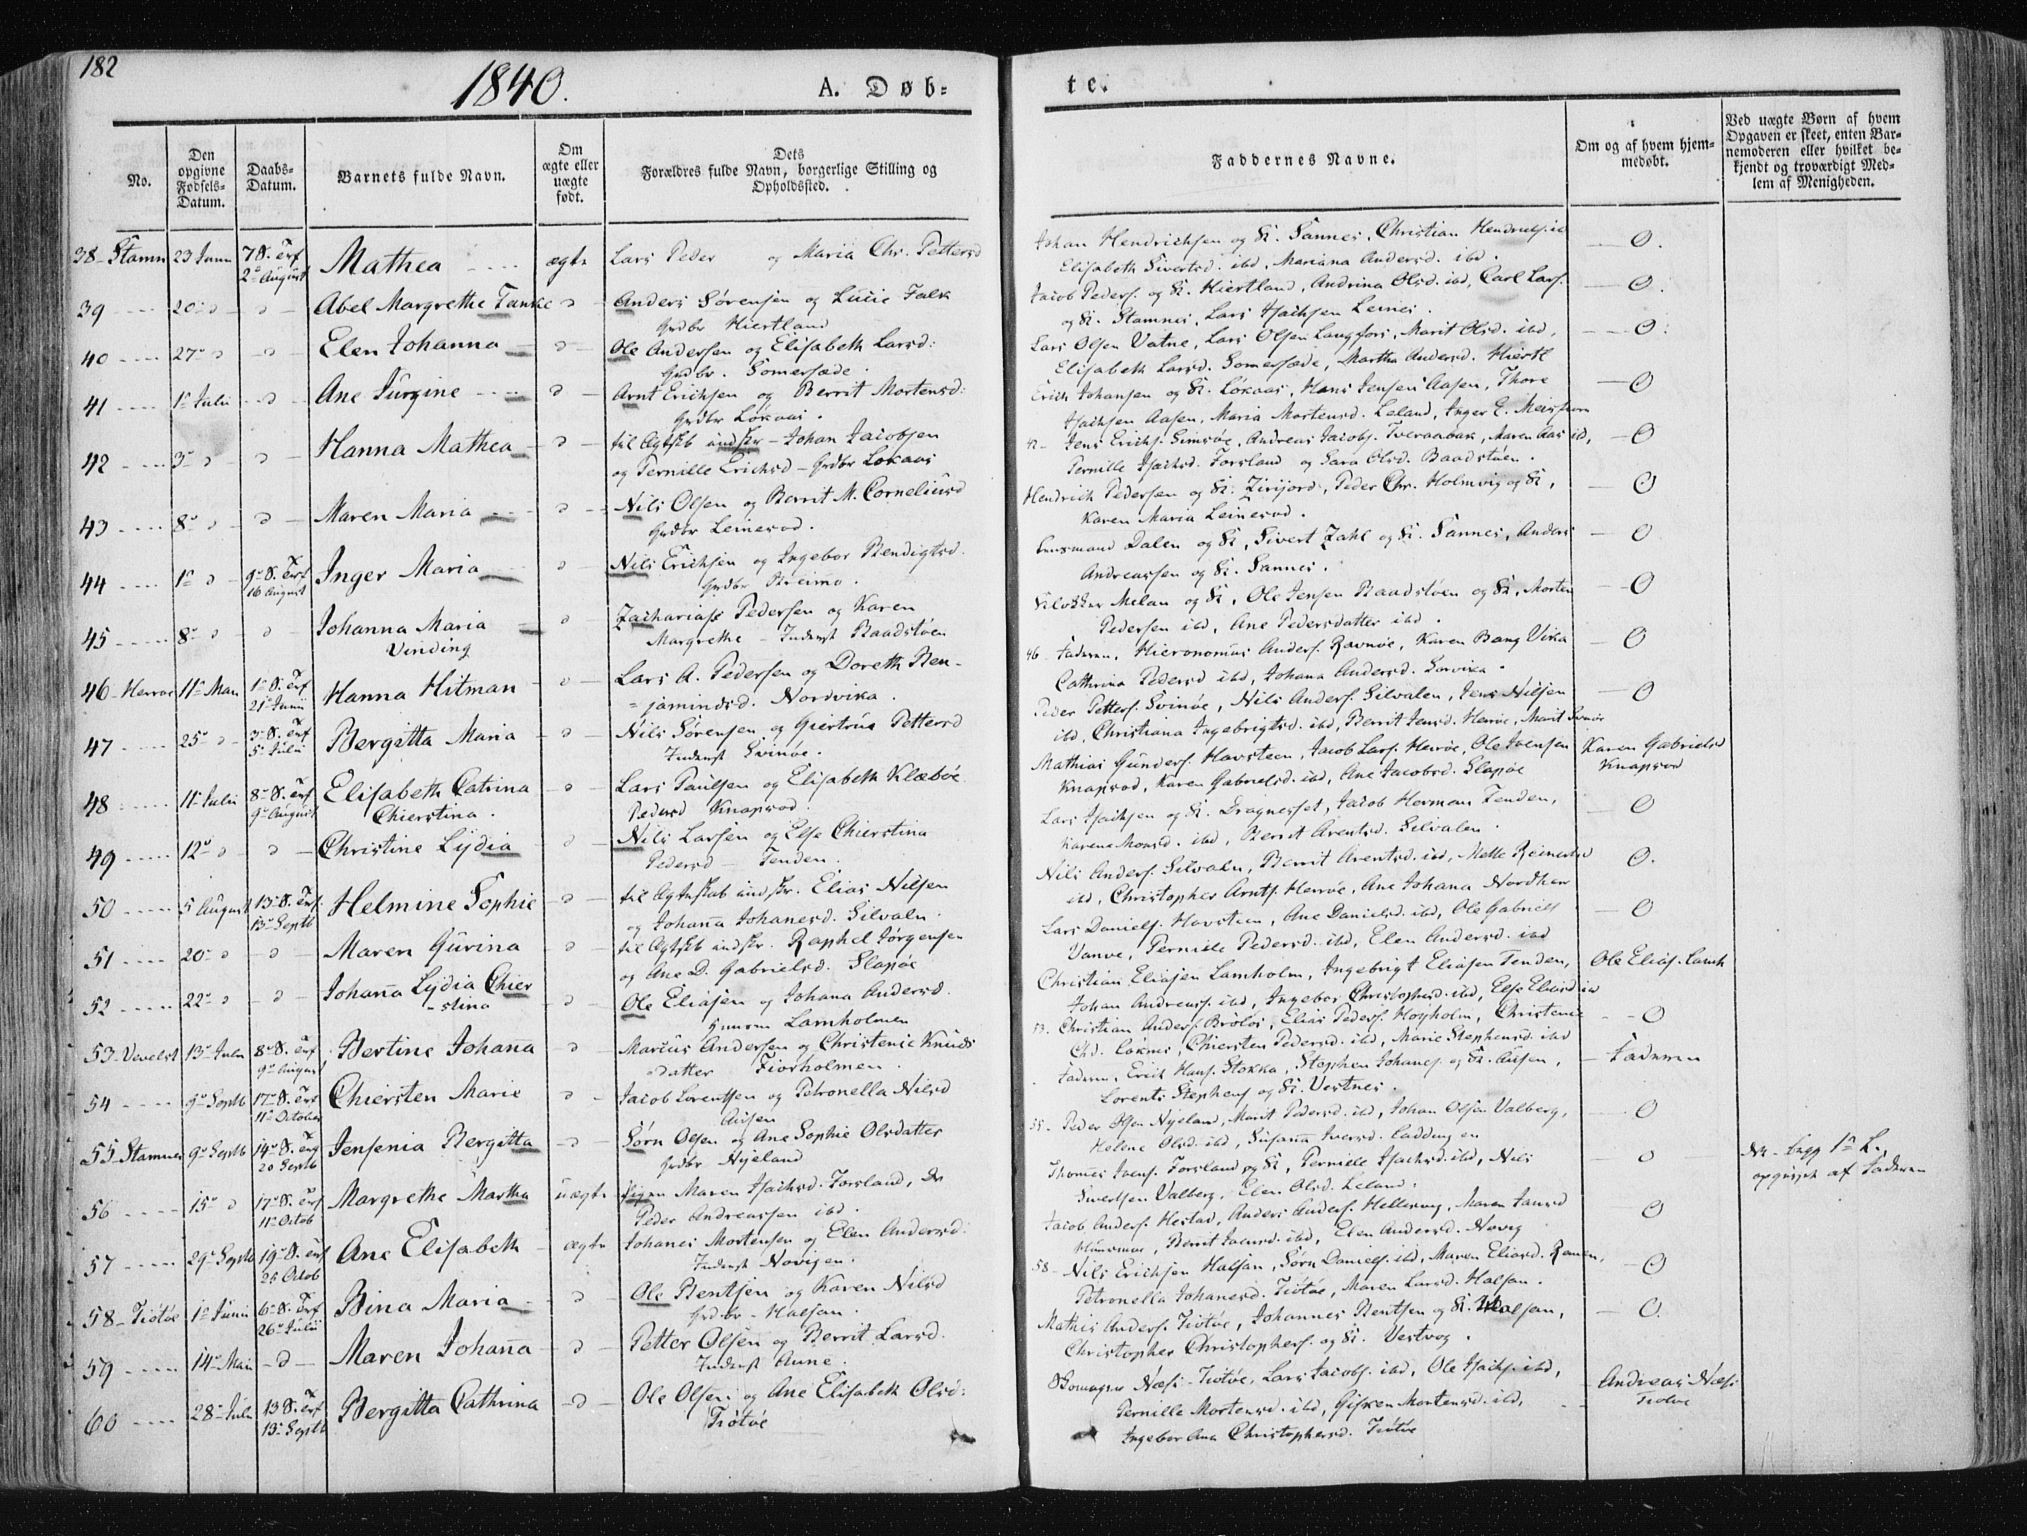 182
1840.
A. Døb=
te.
No.
Den opgivne Fødsels-Datum.
Daabs-Datum.
Barnets fulde Navn.
Om ægte eller uægte født.
Dets Forældres fulde Navn, borgerlige Stilling og Opholdssted.
Faddernes Navne.
Om og af hvem hjem-
medøbt.
Ved uægte Børn af hvem
Opgaven er skeet, enten Bar-
nemoderen eller hvilket be-
kjendt og troværdigt Med-
lem af Menigheden.
38 - Stamn 23 Juni 7 S. Trf 2 August Mathea ægte Lars Peder og Maria Chr. Petersd
Johan Hendrichsen og K. Sannes, Christian
Elisabeth Sivertsd. ibd, Mariana Andersd. ibd. O.
39 20 d d Abel Margrethe Tanke d Anders Sørensen og Lucie Falk
Grdbr Hiertland
Jacob Peders. og K. Hiertland, Andrina Olsd. ibd, Carl Lars.
og K. Stamnes, Lars Isachsen Leines. O.
40 27 d d Elen Johanna d Ole Andersen og Elisabeth Larsd:
Grdbr. Somersæde.
Lars Olsen Vatne, Lars Olsen Langfors, Marit Olsd. ibd,
Elisabeth Larsd. Somersæde, Martha Andersd. Hiertl O.
41 1 Juli d Ane Jurgine d Arnt Erichsen og Berrit Mortensd:
Grdbr Lokaas.
Erich Johansen og K. Lokaas, Hans Jensen Aasen, Thore
Isachsen Aasen, Maria Mortensd. Leland, Inger E. O
42 3 d d Hanna Mathea d til Ægtskb indskr - Johan Jacobsen
og Pernille Erichsd - Grdbr Lokaas
42 - Jens Erichs. Simsøe, Andreas Jacobs. Tveraabak, Maren ibd,
Pernille Isachsd. Forsland og Sara Olsd. Baadstøen. O
43 8 d d Maren Maria d Nils Olsen og Berrit M. Corneliusd
Grdbr Leinesod.
Hendrich Pedersen og K. Zirijord, Peder Chr. Holmvig og K,
Karen Maria Leinesod. O
44 1 d 9 S. Trf 16 August Inger Maria d Nils Erichsen og Ingebor Bendigtsd.
Grdbr Breimo.
Lensmand Dalen og K, Sivert Zahl og K. Sannes, Anders
Andreassen og K. Sannes. O
45 8 d d Johanna Maria
Vinding d Zacharias Pedersen og Karen
Margrethe - Inderst Baadstøen
Klokker Melan og K, Ole Jensen Baadstøen og K, Morten
Pedersen ibd, Ane Pedersdatter ibd. O
46 - Herrøe 11 Mai 1 S. Trf 21 Juni Hanna Hitman d Lars A. Pedersen og Doreth Ben-
jamindsd. Nordvika.
46 - Faderen, Hieronomus Anders. Ravnøe, Karen Bang Vika
Cathrina Pedersd ibd, Johana Andersd. Sørvika. O
47 25 d 3 S. Trf 5 Juli Bergitta Maria d Nils Sørensen og Giertrue Pettersd
Inderst Svinøe.
Peder Petters. Svinøe, Nils Anders. Silvalen, Jens Nilsen
ibd, Christiana Ingebrigtsd. ibd, Berrit Jensd. Herrøe, Marit Svinøe O
48 11 Juli 8 S. Trf 9 August Elisabeth Catrina
Chierstina. d Lars Paulsen og Elisabeth Klæbøe
Pedersd Knapsod.
Mathias Gunders. Havsteen, Jacob Lars. Herrøe, Ole Ivensen
Knapsod, Karen Gabrielsd. ibd, Ane Jacobsd. Slapøe Karen Gabrielsd
Knapsod
49 12 d d Christine Lydia d Nils Larsen og Else Chierstina
Pedersd - Tenden.
Lars Isachsen og K. Dragnesset, Jacob Herman Tenden,
Karena Monsd. ibd, Berrit Arentsd. Silvalen. O
50 5 August 13 S. Trf. 13 Septb Helmine Sophie d til Ægteskab indskr. Elias Nilsen
og Johana Johanesd. Silvaln.
Nils Anders. Silvaln, Berrit Arentsd. ibd, Mette Reinertsd
ibd, Christopher Arnts. Herrøe, Ane Johana Nordher O.
51 20 d d Maren Gurina d til Ægtskb indskr. Raphel Jørgensen
og Ane D. Gabrielsd. Slapøe
Lars Daniels. Havsteen, Ane Danielsd. ibd, Ole Gabriels
Vanve, Pernille Pedersd. ibd, Elen Andersd. ibd O
52 22 d d Johana Lydia Chier
-stina d Ole Eliasen og Johana Andersd.
Lamholmen
Christian Eliasen Lamholm, Ingebrigt Eliasen Tenden,
Johan Andreass. ibd, Ingebor Christophersd. ibd, Else Eliasd ibd Ole Elias. Lamh
53 - Vevelst 13 Juli 8 S. Trf 9 August Bertine Johana d Marius Andersen og Christenie Knuds
datter Fivrholmen.
53. Christian Anders. Brøløs, Elias Peders. Høyholm, Christenie
Chd. Lokms, Chiersten Pedersd. ibd, Marie Stephensd. ibd O
54 9 Septb 17 S. Trf 11 October Chiersten Marie d Jacob Lorentsen og Petronella Nilsd
Ausen
Faderen, Erich Hans. Stokka, Stephen Johanes. og K. Ausen,
Lorents Stephens og K. Vestnes. Faderen
55 - Stamnes 9 Septb 14 S. Trf 20 Septb Jensenia Bergitta d Sørn Olsen og Ane Sophie Olsdatter
Grdbr Nyeland
55 - Peder Olsen Nyeland, Marit Pedersd. ibd, Johan Olsen Valberg,
Helene Olsd. ibd, Susana Iversd. O
56 15 d 17 S. Trf 11 Octob Margrethe Martha uægte Pigen Maren Isachsd. Forsland,
Peder Andreassen ibd.
Thomas Forsland og K, Pernille Isachsd. ibd, Nils
Sivertsen Valberg, Elen Olsd. Leland. O
1 L.
af Faderen
57 29 Septb 19 S. Trf 25 Octob Ane Elisabeth ægte Johanes Mortensen og Elen Andersd:
Inderst Novigen.
Jacob Anders. Hestad, Anders Anders. Hellesvig, Maren
Berrit ibd, Elen Andersd. Novig O
58 - Tiøtøe 1 Juni 6 S. Trf 26 Juli Bina Maria d Ole Bentsen og Karen Nilsd
Grdbr - Halsan.
58 - Nils Erichsen Halsan, Sørn Daniels. ibd, Maren Eliasd.
Petronella Johanesd. Tiøtøe, Maren Larsd. Halsan. O
59 14 Mai d Maren Johana d Petter Olsen og Berrit Larsd.
Inderst Aune.
Mathis Anders. Tiøtøe, Johannes Bentsen og K. Halsan,
Christopher Christophers. og K. Vestvog. O.
60 28 Juli 13 S. Trf 13 Septb Bergitta Cathrina d Ole Olsen og Ane Elisabeth Olsd:
Tiøtøe
Næss - Tiøtøe, Lars Jacobs. ibd, Ole Isachs. ibd,
Pernille Mortensd. ibd, Gisken Mortensd. ibd,
Ingebor Ana Christophersd. Tiøtøe Andreas Næss
Tiøtøe